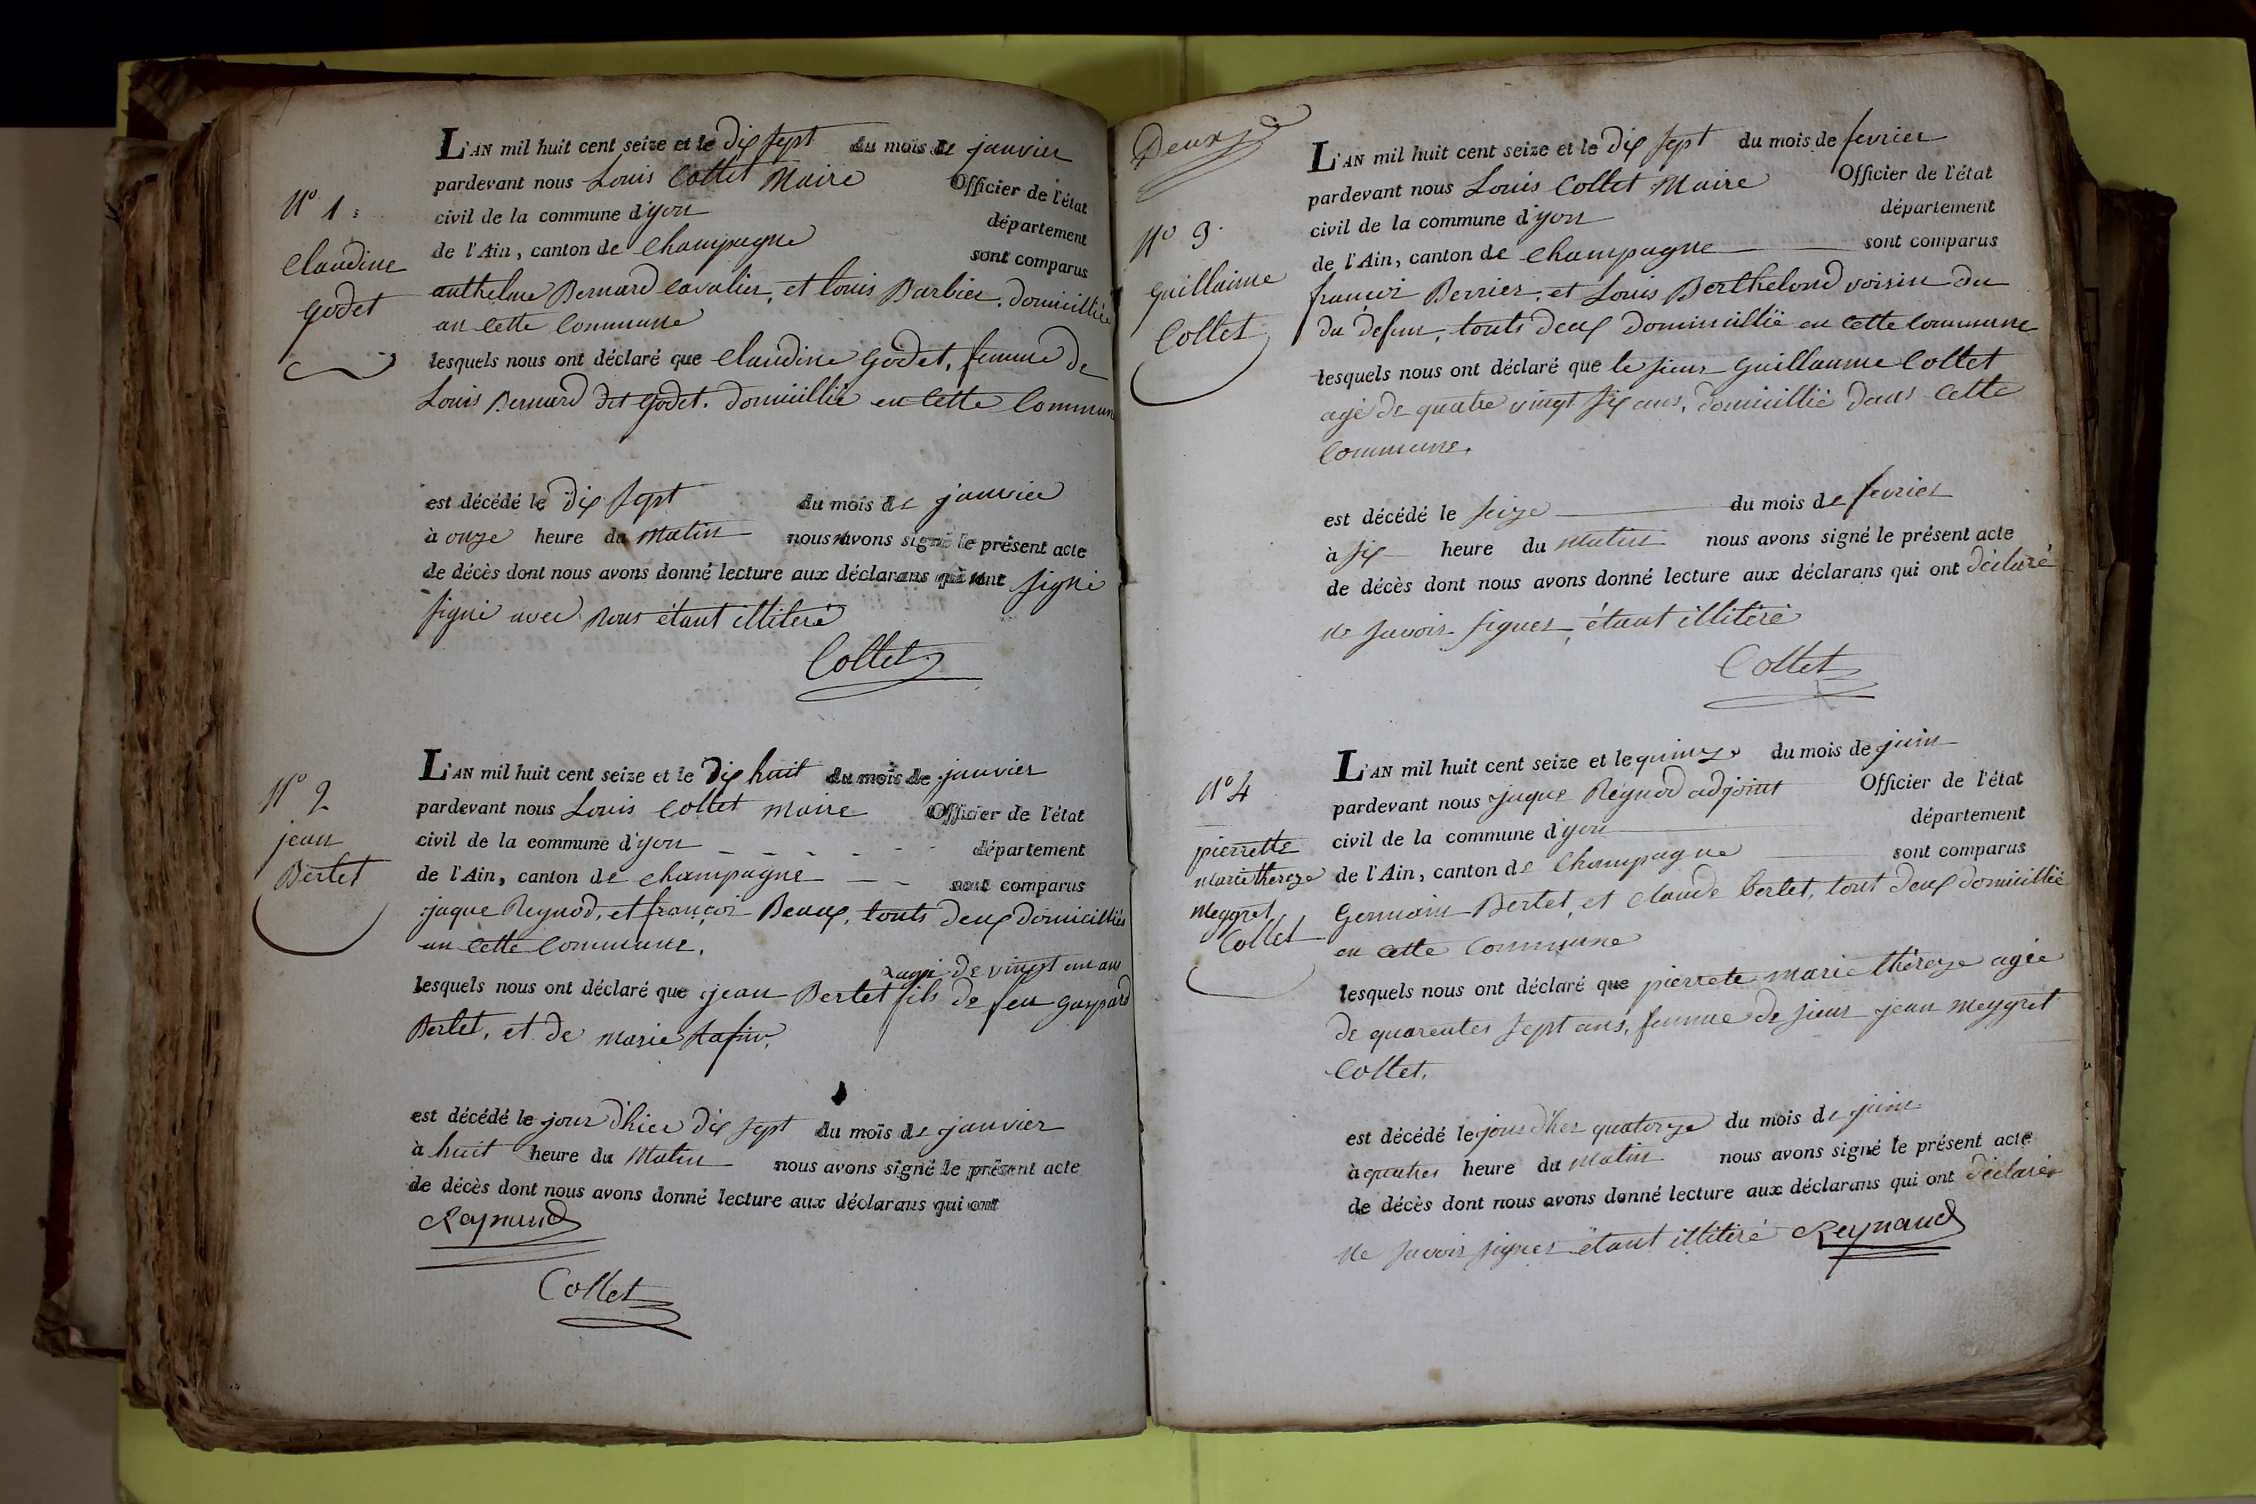 L'AN mil huit cent seize et le dix sept du mois de janvier
pardevant nous Louis Collet Maire Officier de l'état
civil de la commune d'yon département
de l'Ain, canton de Champagne sont comparus
anthelme Bernard Cavalier, et louis Barbier, domicillié
en cette Commune
lesquels nous ont déclaré que Claudine Godet, femme de
Louis Bernard dit Godet. domicillié en cette Commune
est décédé le dix sept du mois de janvier
à onze heure du matin nous avons signé le présent acte
de décès dont nous avons donné lecture aux déclarans qui ont signé
signé avec nous étant illitéré
Collet
N° 1
Claudine
Godet
L'AN mil huit cent seize et le dix huit du mois de janvier
pardevant nous Louis Collet maire Officier de l'état
civil de la commune d'yon département
de l'Ain, canton de champagne sont comparus
jaque Reynod, et françois Beaux, touts deux domicilliés
en cette Commune,
agé de vingt un ans
lesquels nous ont déclaré que jean Berlet fils de feu gaspard
Berlet, et de marie
est décédé le jour d'hier dix sept du mois de janvier
à huit heure du matin nous avons signé le présent acte
de décès dont nous avons donné lecture aux déclarans qui ont
Reynaud
Collet
N° 2
jean
Berlet
Deux
L'AN mil huit cent seize et le dix sept du mois de fevrier
pardevant nous Louis Collet Maire Officier de l'état
civil de la commune d'yon département
de l'Ain, canton de Champagne sont comparus
françois Berrier, et Louis Berthelond voisin du
du defun, touts deux dominsillié en cette Commune
lesquels nous ont déclaré que le sieur Guillaume Collet
agé de quatre vingt six ans, domicillié dans cette
Commune.
est décédé le seize du mois de fevrier
à six heure du matin nous avons signé le présent acte
de décès dont nous avons donné lecture aux déclarans qui ont déclaré
ne savoir signer, étant illitéré
Collet
N° 3
Guillaume
Collet
L'AN mil huit cent seize et le quinze du mois de juin
pardevant nous jaque Reynod adjoint Officier de l'état
civil de la commune d'yon département
de l'Ain, canton de Champagne sont comparus
Germain Berlet, et Claude berlet, tout deux domicillié
en cette Commune
lesquels nous ont déclaré que pierrete marie théreze agée
de quarentes sept ans, femme de sieur jean Meygret
Collet.
est décédé le jour d'hier quatorze du mois de juin
à quatres heure du matin nous avons signé le présent acte
de décès dont nous avons donné lecture aux déclarans qui ont déclarér
ne savoir signer étant illitéré Reynaud
N° 4
pierrette
marie thereze
Meygret
Collet